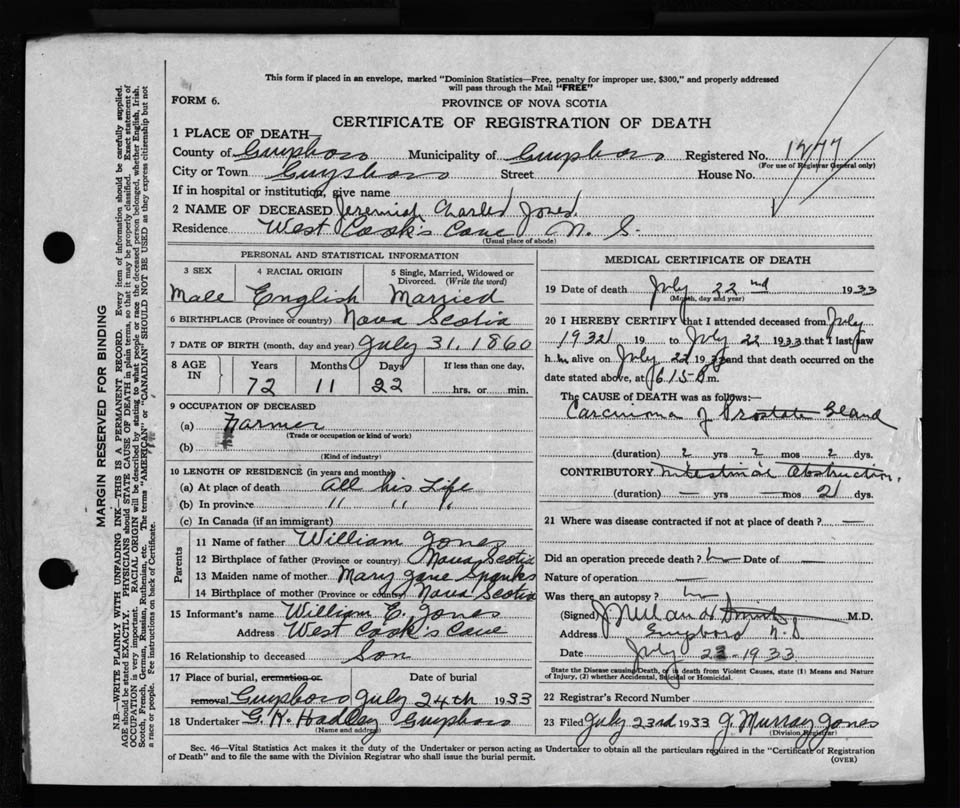 This form if placed in an envelope, marked "Dominion Statistics—Free, penalty for improper use, $300," and properly addressed
will pass through the Mail "FREE"
FORM 6.
PROVINCE OF NOVA SCOTIA
CERTIFICATE OF REGISTRATION OF DEATH
1 PLACE OF DEATH
County of Guysboro Municipality of Guysboro Registered No. 1277
(For use of Registrar General only)
City or Town Guysboro Street House No.
If in hospital or institution, give name
2 NAME OF DECEASED Jeremiah Charles Jones.
Residence West Cook's Cove N. S.
(Usual place of abode)
PERSONAL AND STATISTICAL INFORMATION
3 SEX 4 RACIAL ORIGIN 5 Single, Married, Widowed or Divorced. (Write the word)
Male English Married
6 BIRTHPLACE (Province or country) Nova Scotia
7 DATE OF BIRTH (month, day and year) July 31, 1860
8 AGE IN Years Months Days If less than one day,
72 11 22 hrs. or min.
9 OCCUPATION OF DECEASED
(a) Farmer
(Trade or occupation or kind of work)
(b)
(Kind of industry)
10 LENGTH OF RESIDENCE (in years and months)
(a) At place of death All his Life
(b) In province " " "
(c) In Canada (if an immigrant)
Parents
11 Name of father William Jones
12 Birthplace of father (Province or country) Nova Scotia
13 Maiden name of mother Mary Jane Spanks
14 Birthplace of mother (Province or country) Nova Scotia
15 Informant's name William E. Jones
Address West Cook's Cove
16 Relationship to deceased Son
17 Place of burial, cremation or removal Date of burial
Guysboro July 24th 1933
18 Undertaker G. K. Hadley Guysboro
(Name and address)
MEDICAL CERTIFICATE OF DEATH
19 Date of death July 22nd 1933
(Month, day and year)
20 I HEREBY CERTIFY that I attended deceased from July
1932 19 to July 22 1933 that I last saw
him alive on July 22 1933 and that death occurred on
date stated above, at m.
The CAUSE OF DEATH was as follows:—
Carcinoma of Prostate Gland
(duration) 2 yrs 2 mos 2 dys.
CONTRIBUTORY Intestinal Obstruction,
(duration) — yrs — mos 2 dys.
21 Where was disease contracted if not at place of death? —
Did an operation precede death? No Date of —
Nature of operation —
Was there an autopsy? No
(Signed) M.D.
Address Guysboro N.S
Date July 1933
State the Disease causing Death, or in death from Violent Causes, state (1) Means and Nature
of Injury, (2) whether Accidental, Suicidal or Homicidal.
22 Registrar's Record Number
23 Filed July 23rd 1933 J. Murray Jones
(Division Registrar)
Sec. 46—Vital Statistics Act makes it the duty of the Undertaker or person acting as Undertaker to obtain all the particulars required in the "Certificate of Registration
of Death" and to file the same with the Division Registrar who shall issue the burial permit.
(OVER)
MARGIN RESERVED FOR BINDING
N.B.—WRITE PLAINLY WITH UNFADING INK—THIS IS A PERMANENT RECORD. Every item of information should be carefully supplied.
AGE should be stated EXACTLY. PHYSICIANS should STATE CAUSE OF DEATH in plain terms, so that it may be properly classified. Exact statement of
OCCUPATION is very important. RACIAL ORIGIN will be described by stating to what people or race the deceased person belonged, whether English, Irish,
Scotch, French, German, Russian, Ruthenian, etc. The terms "AMERICAN" or "CANADIAN" SHOULD NOT BE USED as they express citizenship but not
a race or people. See instructions on back of Certificate.